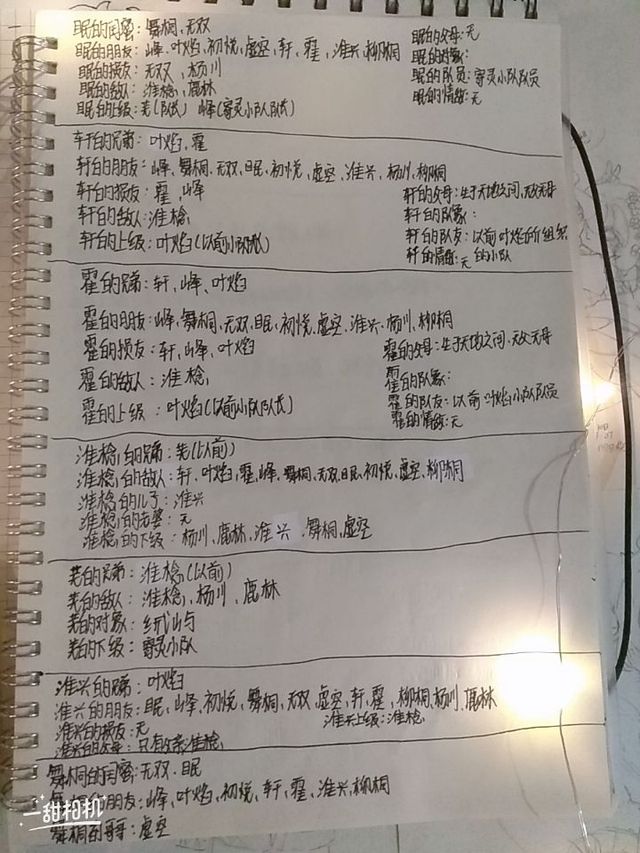 眠的闺蜜：舞桐、无双
眠的朋友：峰、叶焰、初悦、虚空、轩、霍、淮兴、柳桐
眠的损友：无双、杨川
眠的敌人：淮桧、鹿林
眠的上级：羌(队长) 峰(寄灵小队队长)
眠的父母：无
眠的对象：
眠的队员：寄灵小队队员
眠的情敌：无
轩的兄弟：叶焰、霍
轩的朋友：峰、舞桐、无双、眠、初悦、虚空、淮兴、杨川、柳桐
轩的损友：霍、峰
轩的敌人：淮桧
轩的上级：叶焰(以前小队队长)
轩的父母：生于天地之间、无父无母
轩的对象：
轩的队友：以前叶焰所组织
的小队
轩的情敌：无
霍的兄弟：轩、峰、叶焰
霍的朋友：峰、舞桐、无双、眠、初悦、虚空、淮兴、杨川、柳桐
霍的损友：轩、峰、叶焰
霍的敌人：淮桧
霍的上级：叶焰(以前小队队长)
霍的父母：生于天地之间、无父无母
霍的对象：
霍的队友：以前叶焰小队队员
霍的情敌：无
淮桧的兄弟：羌(以前)
淮桧的敌人：轩、叶焰、霍、峰、舞桐、无双、眠、初悦、虚空、柳桐
淮桧的儿子：淮兴
淮桧的老婆：无
淮桧的下级：杨川、鹿林、淮兴、舞桐、虚空
羌的兄弟：淮桧(以前)
羌的敌人：淮桧、杨川、鹿林
羌的对象：
羌的下级：寄灵小队
淮兴的兄弟：叶焰
淮兴的朋友：眠、峰、初悦、舞桐、无双、虚空、轩、霍、柳桐、杨川、鹿林
淮兴的损友：无
淮兴上级：淮桧
淮兴的父母：只有父亲淮桧
舞桐的闺蜜：无双、眠
舞桐的朋友：峰、叶焰、初悦、轩、霍、淮兴、柳桐
舞桐的哥哥：虚空
一甜相机